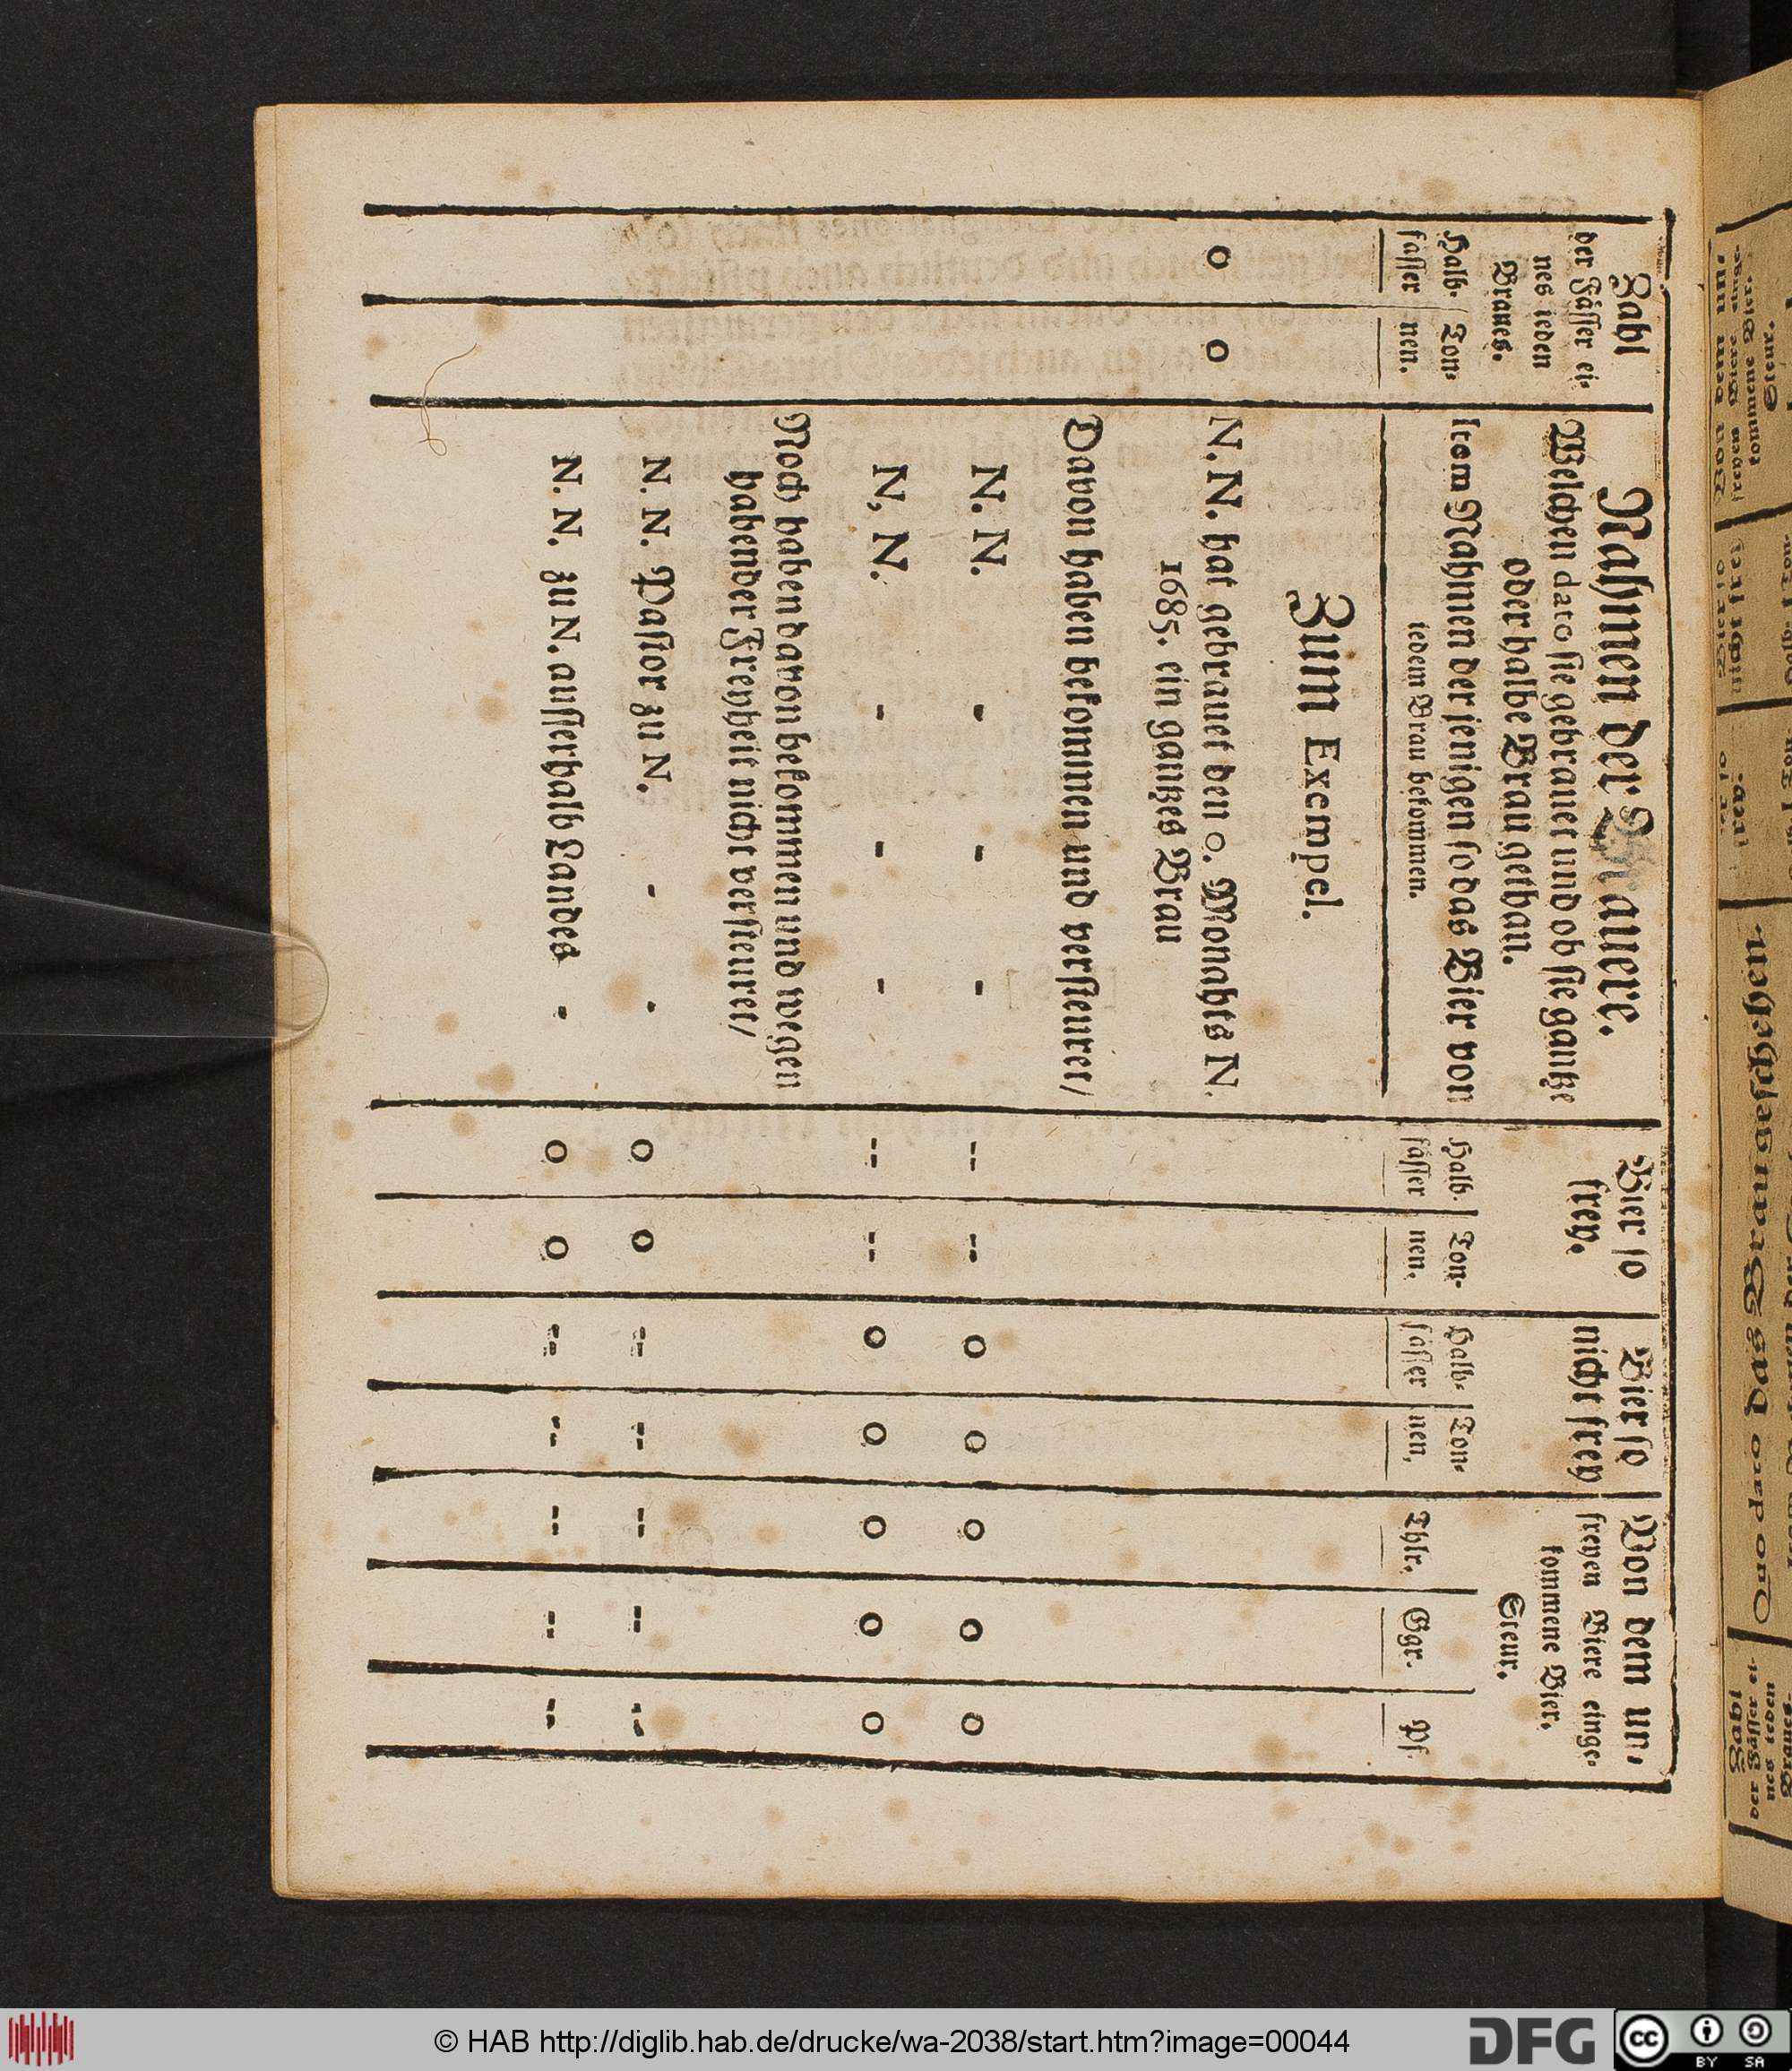 Zahl
der Fässer ei-
nes ieden
Braues.
Halb-
fässer
Ton-
nen.
Nahmen der Brauere.
Welchen dato sie gebrauet und ob sie gantze
oder halbe Brau gethan.
Item Nahmen derjenigen so das Bier von
iedem Brau bekommen.
Bier so
frey.
Halb-
fässer
Ton-
nen.
Bier so
nicht frey
Halb-
fässer
Ton-
nen.
Von dem un-
freyen Biere einge-
kommene Bier-
Steur.
Thlr.
Ggr.
Pf.
Zum Exempel.
o o N. N. hat gebrauet den o. Monahts N.
1685. ein gantzes Brau
Davon haben bekommen und versteuret/
N. N. - - - -- -- o o o o o
N, N. - - - -- -- o o o o o
Noch haben davon bekommen und wegen
habender Freyheit nicht versteuret/
N. N. Pastor zu N. - - o o -- -- -- -- --
N. N. zu N. ausserhalb Landes - o o -- -- -- -- --
Quo dato das Brau geschehen.
Zahl
der Fässer ei-
nes ieden
Braues.
Von dem un-
freyen Biere einge-
kommene Bier-
Steur.
Bier so
nicht frei
© HAB http://diglib.hab.de/drucke/wa-2038/start.htm?image=00044
DFG
cc
BY SA